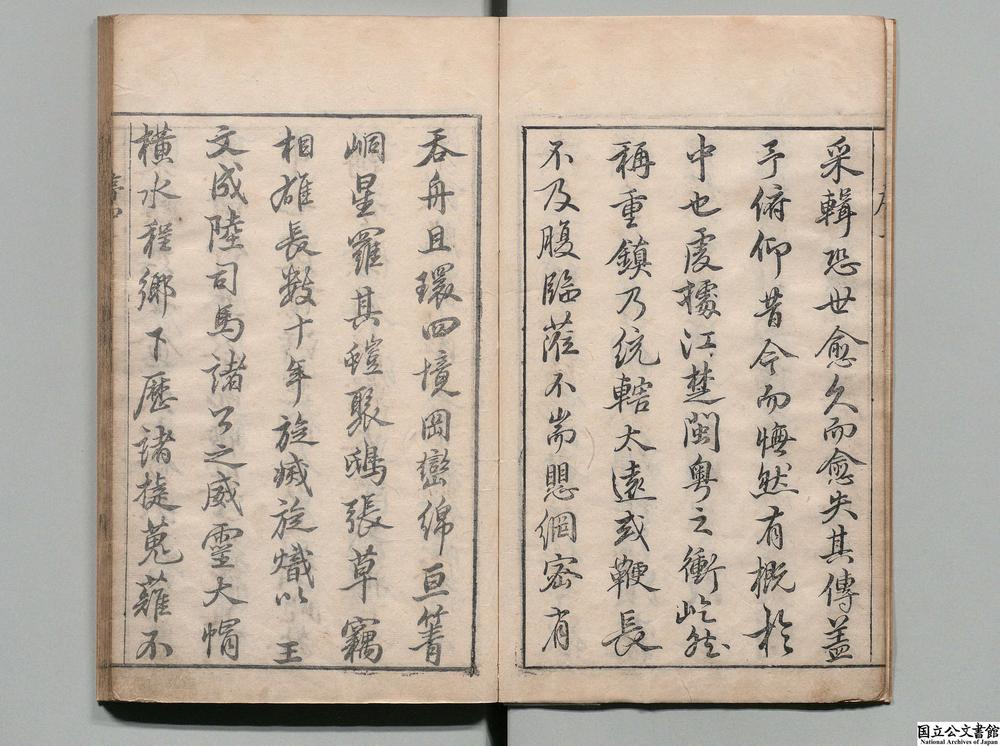 采輯恐世愈久而愈失其傳盖
予俯仰昔今而憮然有概於
中也虔據江楚閩粵之衝屹然
稱重鎮乃統轄太遠或鞭長
不及腹臨蒞不耑思網密有
吞舟且環四境岡巒綿亘箐
峒星羅其螘聚鴟張草竊
相雄長數十年旋滅旋熾以王
文成陸司馬諸公之威靈大帽
橫水程鄉下歷諸捷蒐薙不
国立公文書館
National Archives of Japan